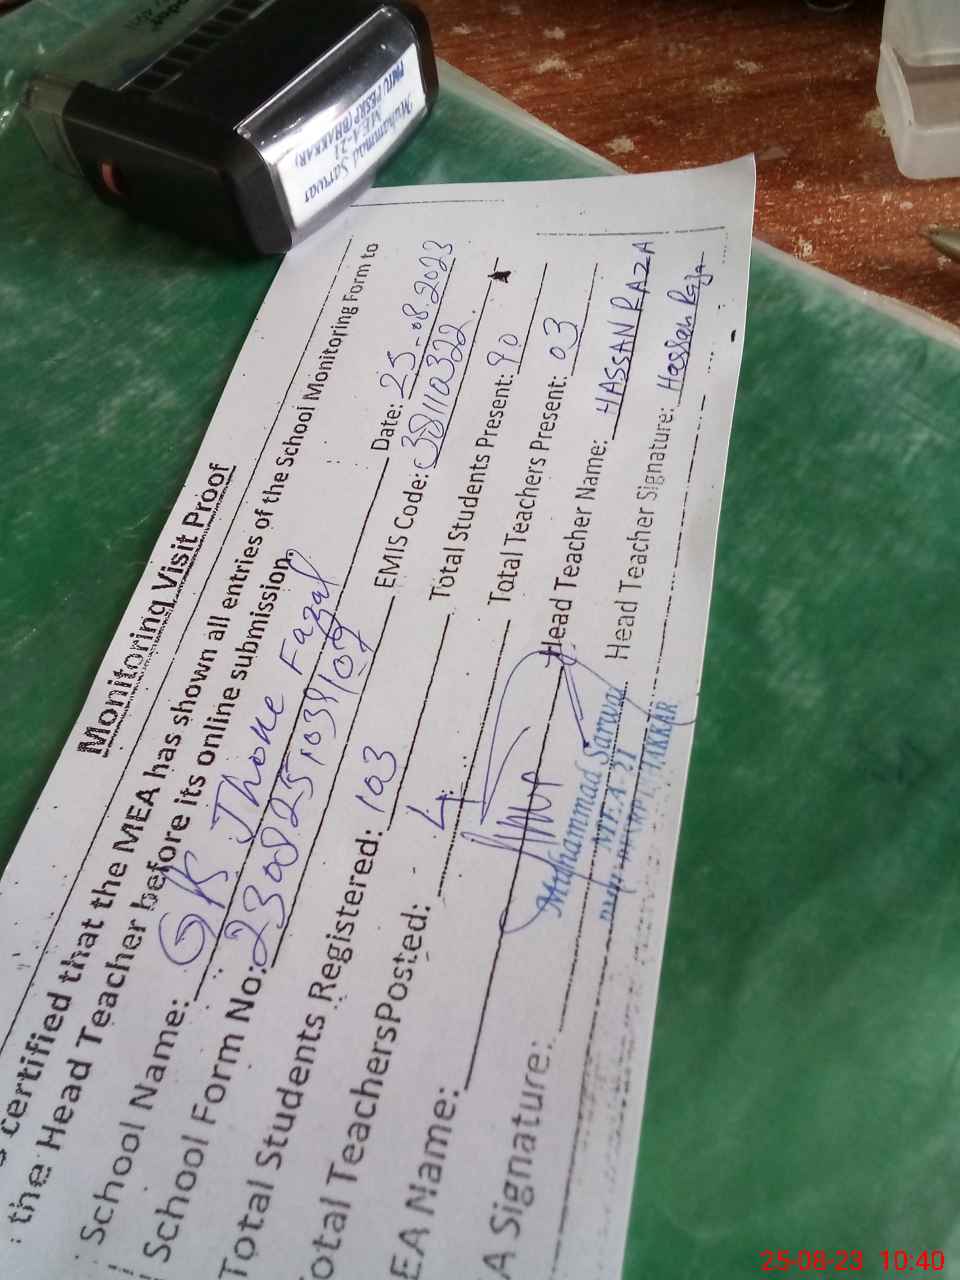 Monitoring Visit Proof
certified that the MEA has shown all entries of the School Monitoring Form to
the Head Teacher before its online submission.
School Name: GPS Jhoke Fazal Date: 25.08.2023
School Form No: EMIS Code: 38110322
Total Students Registered: 103 Total Students Present: 90
otal TeachersPosted: 4 Total Teachers Present: 03
EA Name: Head Teacher Name: HASSAN RAZA
A Signature: Head Teacher Signature: Hassan Raza
Muhammad Sarwar
MEA-21
Muhammad Sarwar
MEA-21
PMIU PESRP (BHAKKAR)
25-08-23 10:40